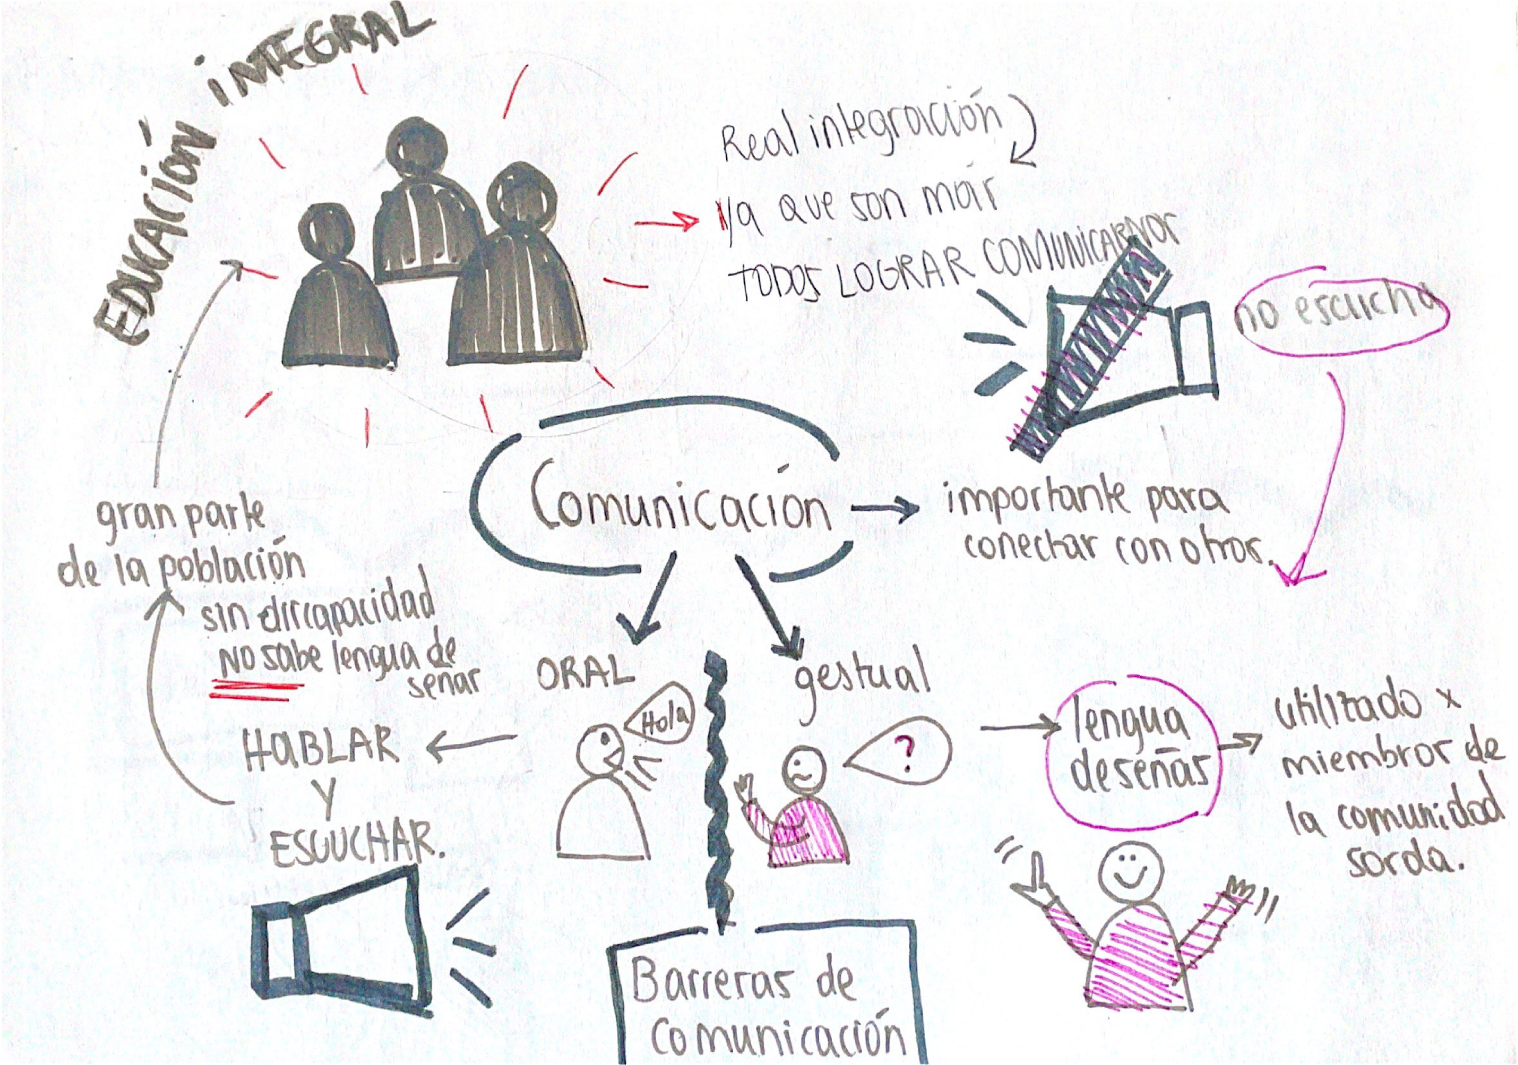 EDUCACIÓN INTEGRAL
Real integración
ya que son más
TODOS LOGRAR COMUNICARNOS
no escucha
Comunicación
importante para
conectar con otros.
gran parte
de la población
sin discapacidad
NO sabe lengua de
señas
ORAL
Hola
HABLAR
Y
ESCUCHAR.
gestual
?
lengua
de señas
utilizado x
miembros de
la comunidad
sorda.
Barreras de
Comunicación